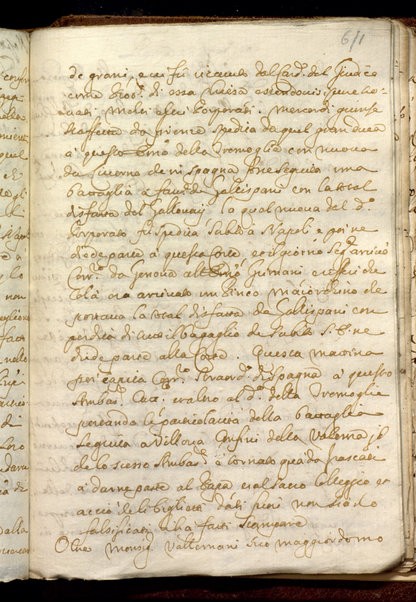 611
de grani, e vi fù ricevuto dal Card. del Giudice
come Prot. di essa Chiesa essendovi
molti altri Porporati. Mercordì giunse
staffetta da Firenze spedita da quel gran duca
a questo della Tremoglie con nuova
da Livorno che in Spagna fosse seguita una
battaglia à favore de Gallispani con la total
disfatta del Gallovay, la qual nuova del d.
Porporato fù spedita subito à Napoli e poi ne
diede parte à questa Corte, e il giorno seg. arrivò
Corr. da Genova all Grimani e riferì che
colà era arrivato un Pinco Maiorchino che
portava la total disfatta de Gallispani con
perdita di tutto il bagaglio de subito S. E. ne
diede parte alla Corte. Questa mattina
poi capitò Corr. straord. di Spagna à questo
Ambas. Catt. e altro al d. della Tremoglie
portando le particolarità della battaglia
seguita à Villorga Confini della Valenza, il
che lo stesso Ambas. è tornato quà da Frascati
à darne parte al Papa e al Sacro Collegio
acciò le li biglietti dati fuori non siano
falsificati li hà fatti stampare
Oltre Monsig. Valtemani suo maggiordomo